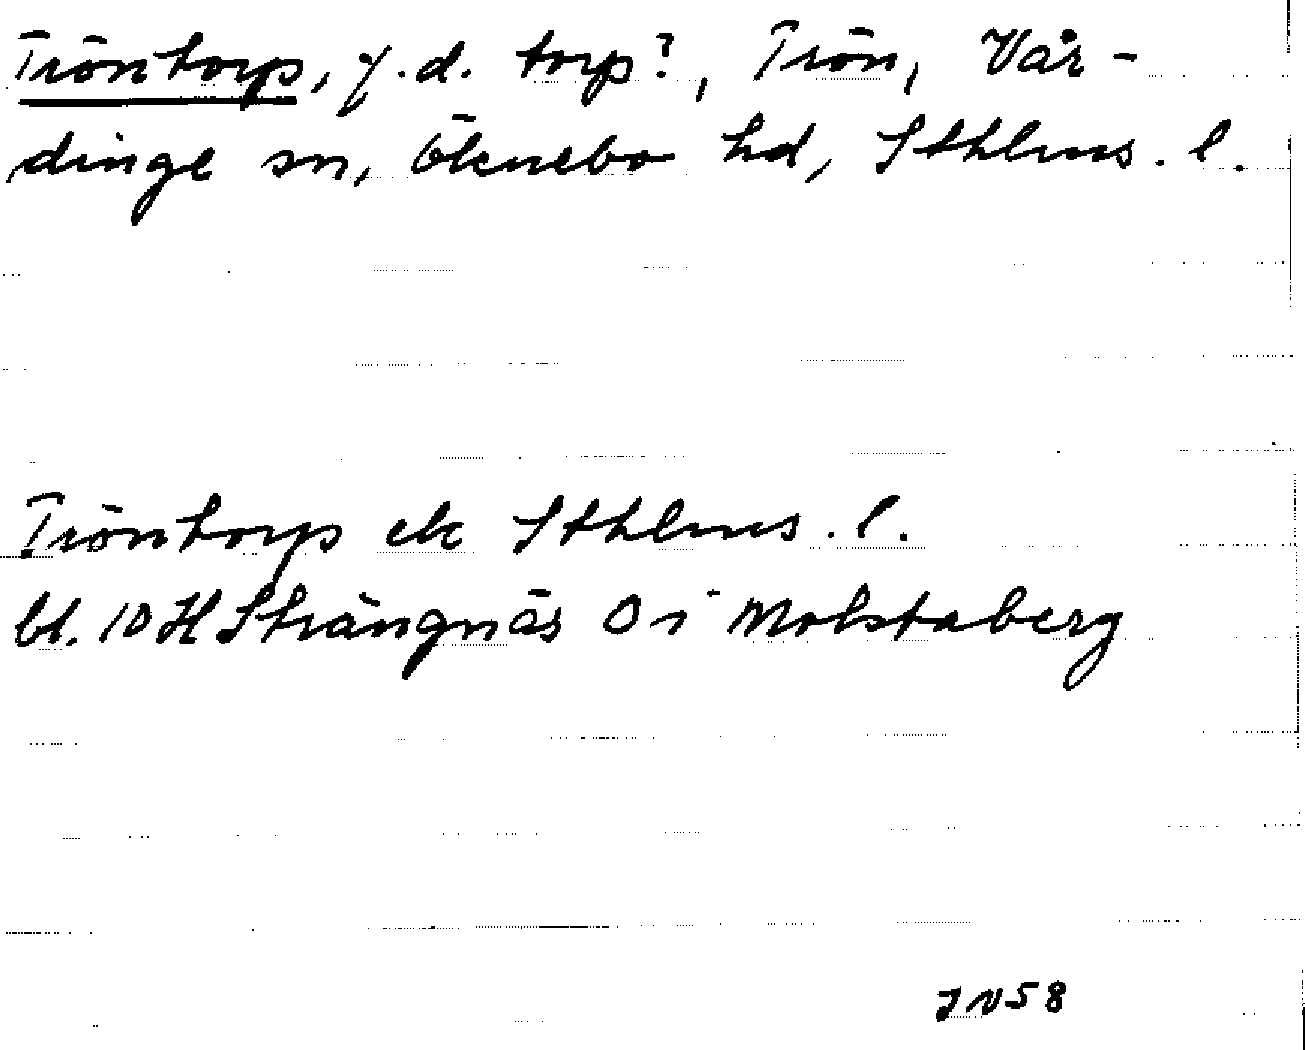 Tröntorp, f.d. torp?, Trön, Vår-
dinge sn, Öknebo hd, Sthlms. l.
Tröntorp ek Sthlms. l.
bl. 10 H Strängnäs O i Molstaberg
JN58